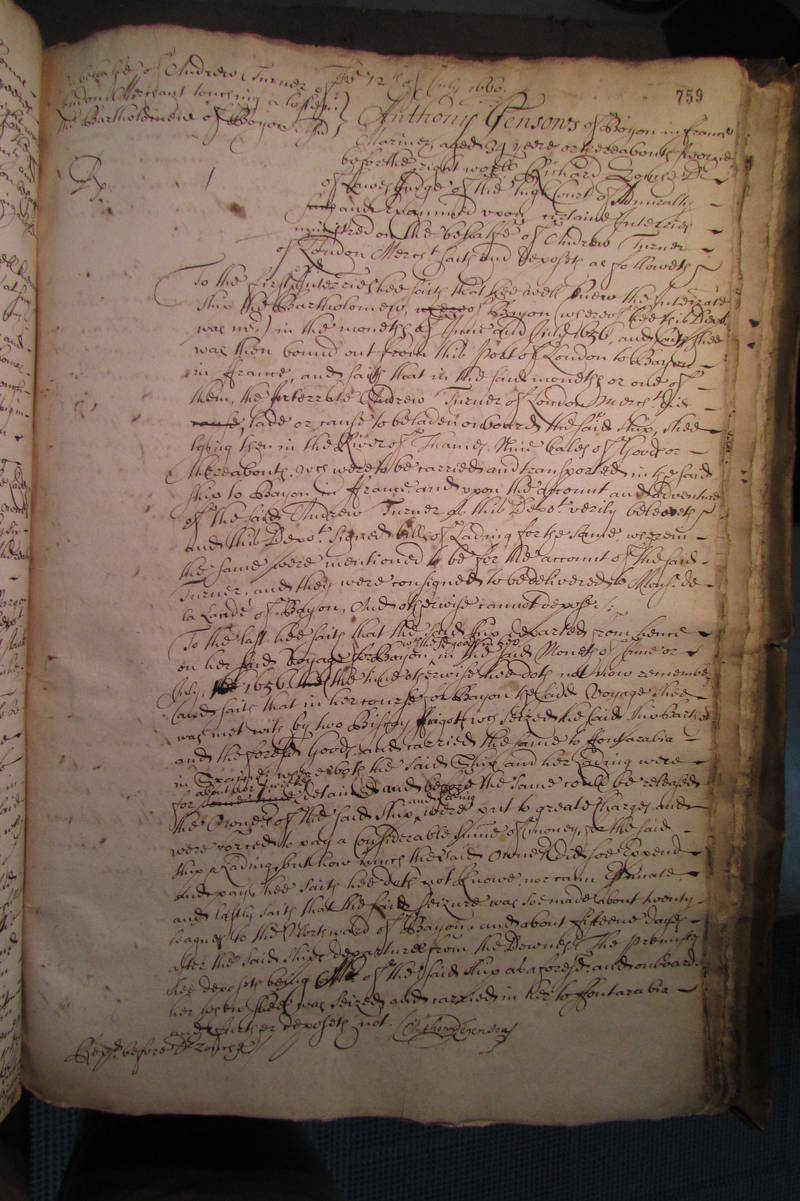 759
behalfe of Andrew Turner of
London Merchant touching a losse in
the Bartholomew of Bayon
The 12th of July 1660.
Anthony Gensons of Bayon in France
Mariner aged 34 yeres or thereabouts sworne
before the right worll Richard Zouch Dr
of Lawes Judge of the high Court of Admiralty
and examined upon certaine Interries
ministred on the behalfe of Andrew Turner
of London Mercht saith and deposeth as followeth
To the first Interrie hee saith that hee well knew the Interrate
ship the Bartholomew, of Bayon (whereof hee this Dept
was mr) in the moneths of June and July 1656, and saith shee
was then bound out from this Port of London to Bayon
in France, and saith that in the said moneths or one of
them, the Interrate Andrew Turner of London Mercht did
lade or cause to be laden onboard the said ship, shee
lying then in the River of Thames Nine bales of Goods or
thereabouts, wch were to be carried and transported in the said
ship to Bayon in France, and upon the account and adventure
of the said Andrew Turner as this Dept verily beleeveth
and this Dept signed bills of Lading for the same wherein
the same were mentioned to be for the account of the said
Turner, and they were consigned to be delivered to Monsr de
la Lande of Bayon, And otherwise cannot depose :
To the last hee saith that the said ship departed from hence
on her said Voyage for Bayon in the said Moneth of June or
July, 1656 the time otherwise hee doth not now remember
(and saith that in her course for Bayon the said Voyage shee
was met with by two Biscay frigotts wch seized the said ship Bartho:
and the foresd Goods and carried the same to Fontarabia
in Spaine, where both the said Ship and her Lading were
for detained and before the same could be released
the Owners of the said Ship and lading were put to greate Charges and
were forced to pay a Considerable summe of money, for the said
ship & Lading, but how much the said Owners did soe Expend
and pay, hee saith hee doth not knowe nor cann Estimate
and lastly saith that the said seizure was soe made about twenty
leagues to the Northward of Bayon, and about fifteene dayes
after the said ships departure from the Downes. The premisses
hee deposeth being Mr of the said ship as aforesd, and onboard
her when shee was seized and carried in her to Fontarabia
and further deposeth not.
Repd before Dr Zouch